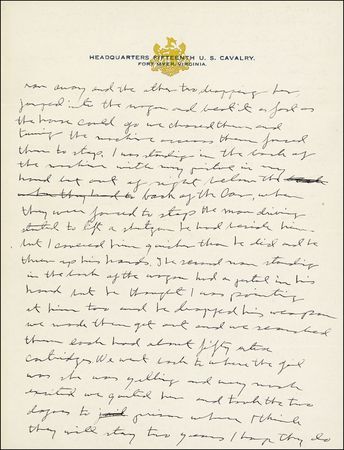 HEADQUARTERS FIFTEENTH U. S. CAVALRY.
FORT MYER, VIRGINIA.
ran away and the other two dropping her
jumped into the wagon and beat it as fast as
the horse could go we chased them and
turning the machine across them forced
them to stop. I was standing in the back of
the machine with my pistol in my
hand but out of sight below the back
when they had to back of the car, when
they were forced to stop the man driving
started to lift a shotgun he had beside him.
but I covered him quicker than he did and he
threw up his hands. The second man standing
in the back of the wagon had a pistol in his
hand but he thought I was pointing
at him too and he dropped his weapon
we made them get out and we searched
them each had about fifty extra
cartridges. We went back to where the girl
was she was yelling and very much
excited we quieted her and took the two
to jail prison where I think
they will stay two years I hope they do